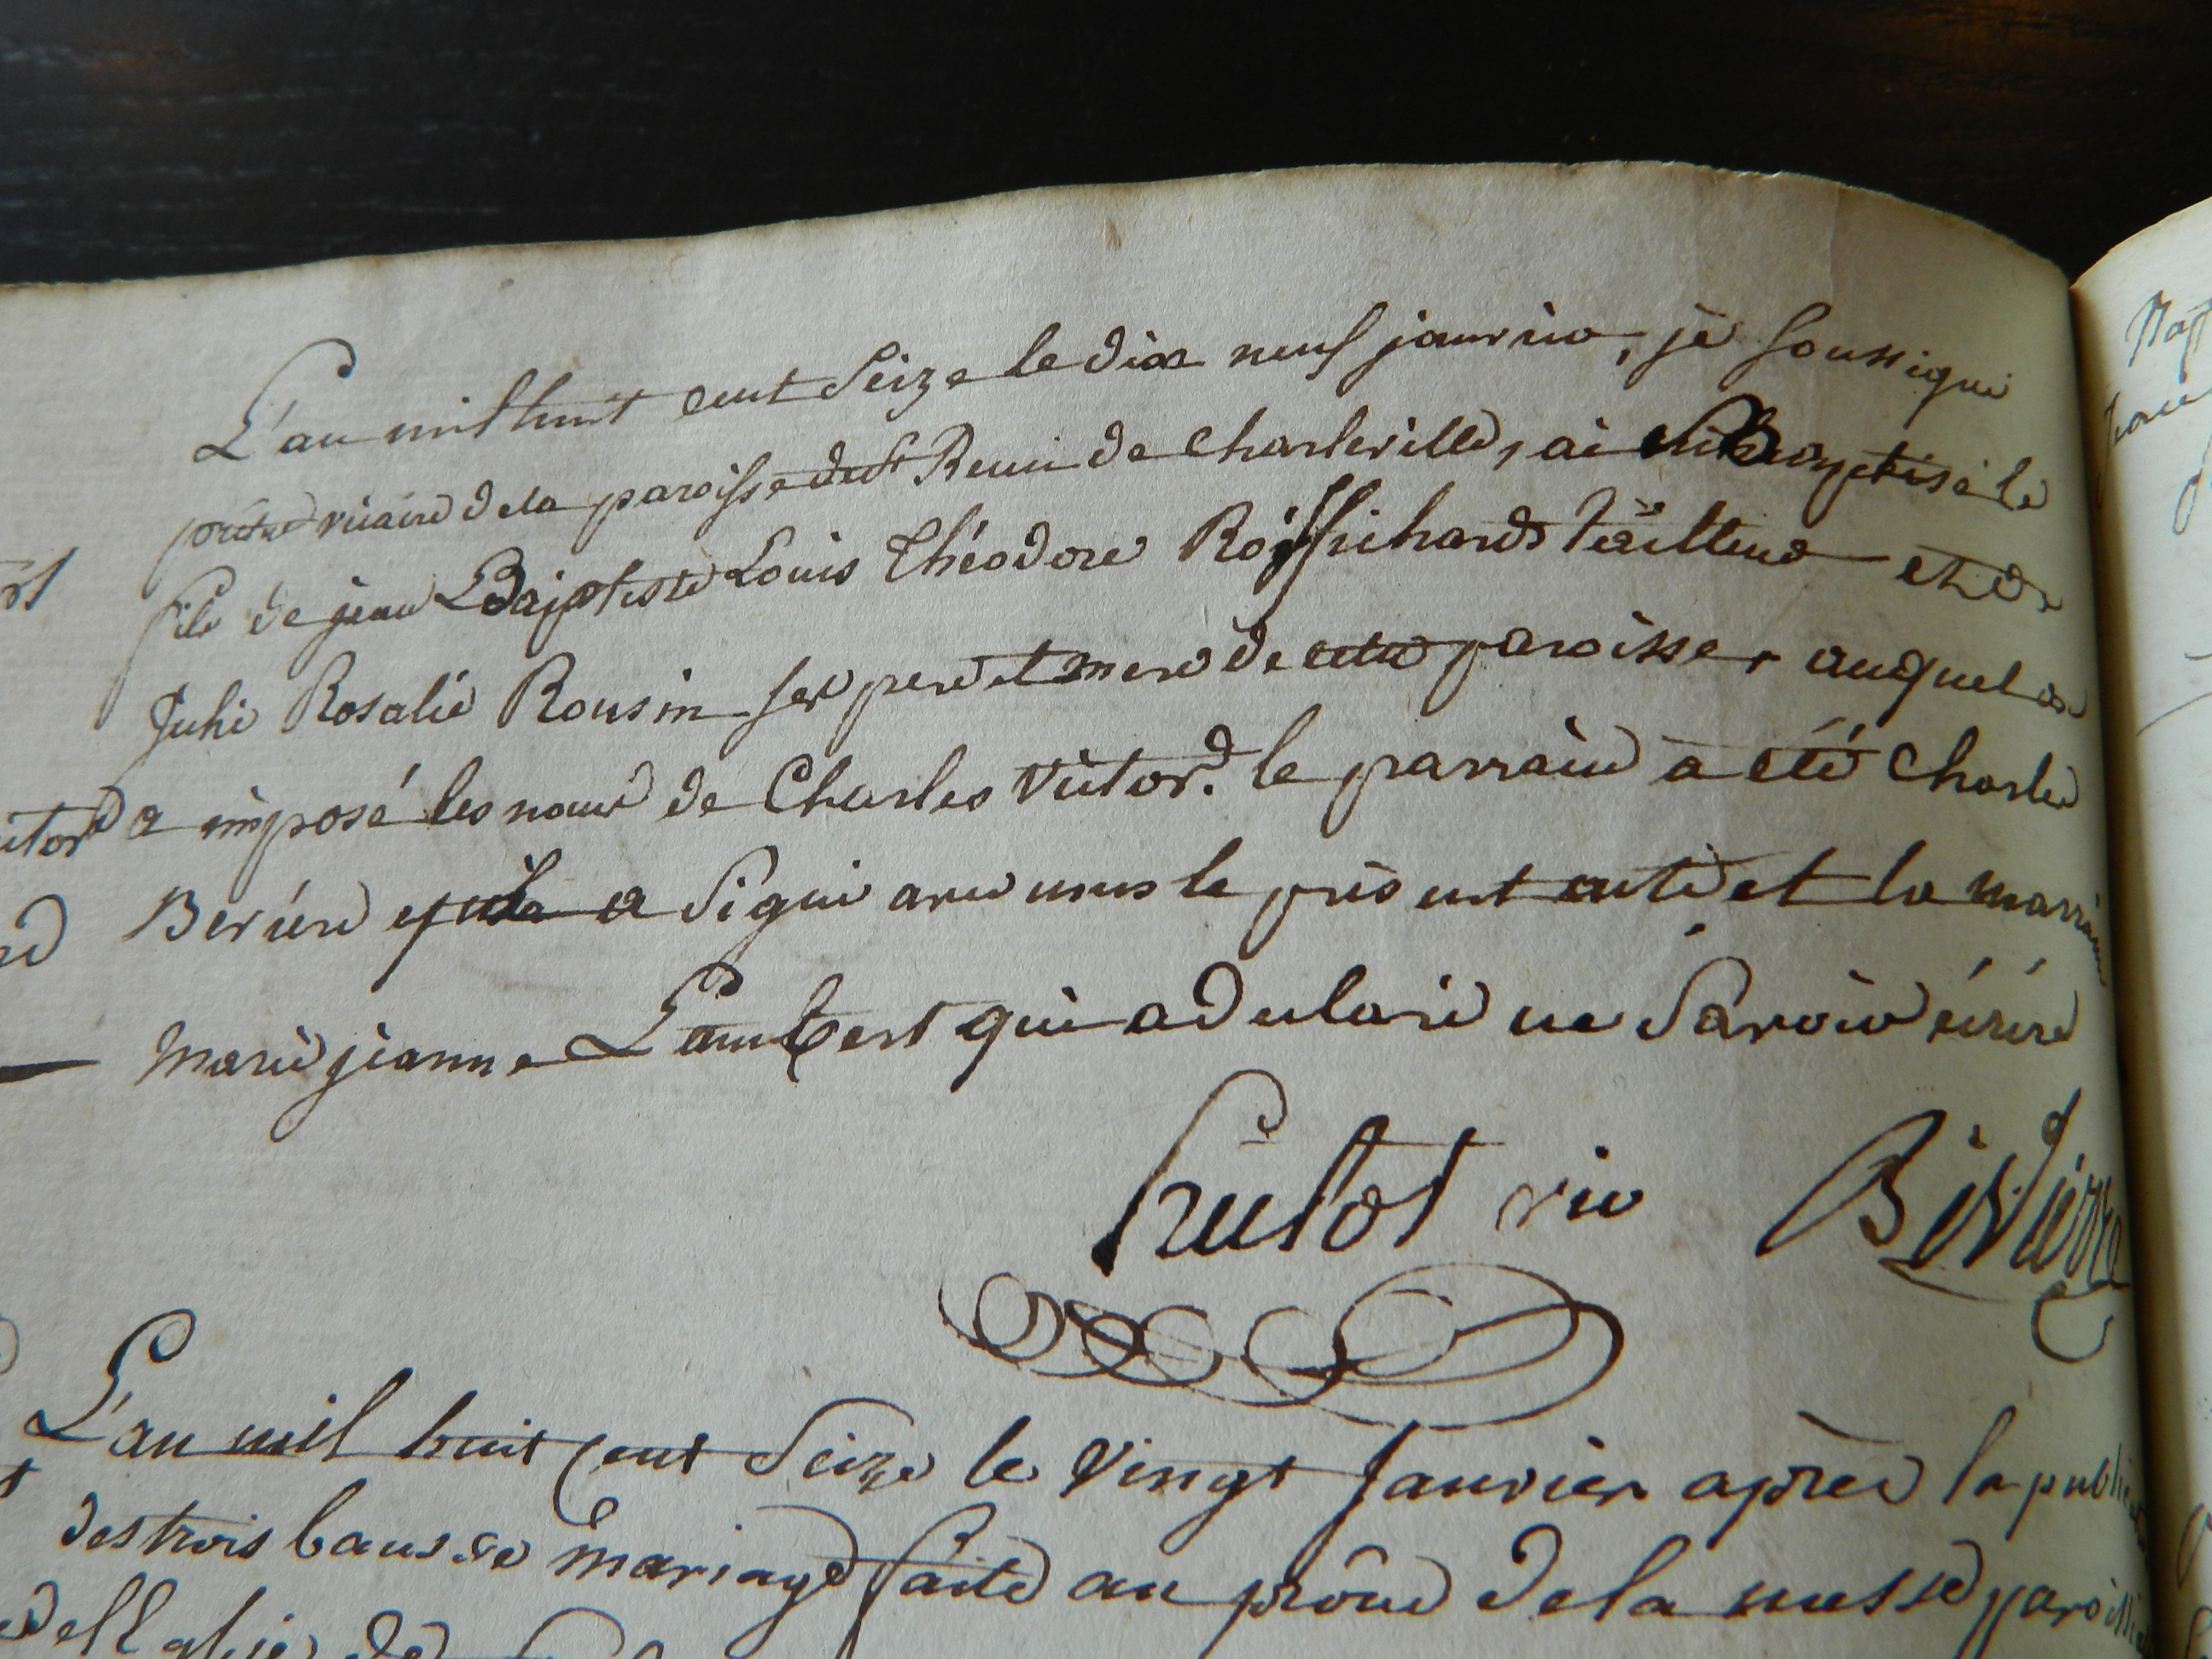 L'an mil huit cent Seize le dix neuf janvier, je soussigné
prêtre vicaire de la paroisse de st Remi de charleville, ai Baptisé le
fils de jean Baptiste Louis Théodore tailleur et de
Julie Rosalie Rousin ses pere et mere de cette paroisse, auquel on
a imposé les noms de Charles Victor. le parrain a été Charles
Beviere qui a Signé avec nous le présent acte et la marraine
marie jeanne Lambert qui a déclaré ne Savoir écrire
hulot vic
L'an mil huit cent Seize le vingt Janvier après la
des trois bans de mariage faite au prône de la messe